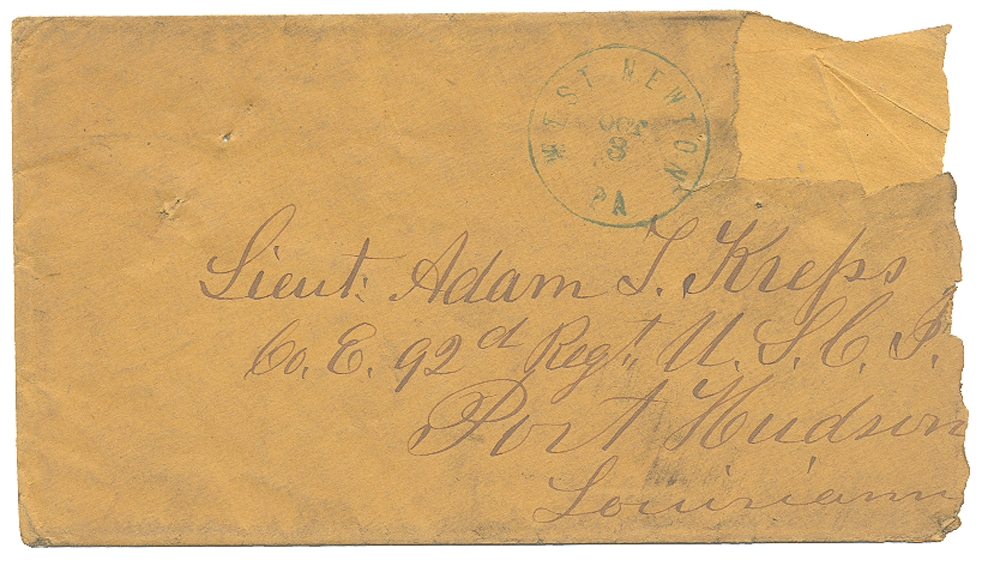 WEST NEWTON
OCT
8
PA
Lieut: Adam T. Kreps
Co. E. 92d Regt. U. S. C. I.
Port Hudson
Louisiana